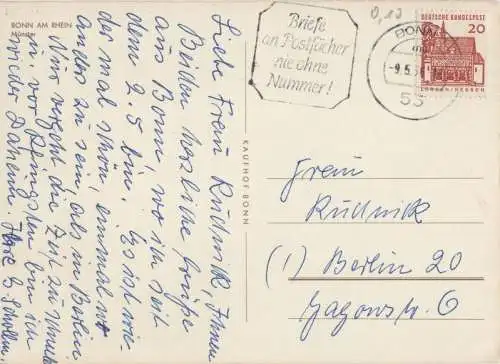 BONN AM RHEIN
Münster
Liebe Frau Rudnik, Ihnen
Beiden herzliche Grüße
aus Bonn, wo ich seit
dem 2.5 bin. Es ist wie-
der mal schön, einmal wo
anders zu sein, als in Berlin
Nur vergeht die Zeit zu schnell
u. vor Pfingsten bin ich
wieder Daheim. Ihre
KAUFHOF BONN
Briefe
an Postfächer
nie ohne
Nummer!
0,10
BONN
-9.5.
53
DEUTSCHE BUNDESPOST
20
LORSCH/HESSEN
Frau
Rudnik
(1) Berlin 20
Jagowstr. 6